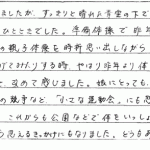 ましたが、すっきりと晴れた青空の下で
ひとときでした。準備体操で
の親子体操を時折思い出しながら
てみたりする時、やはり昨年より体
、なので感じました。娘にとっても、
の競争など、「小さな運動会」にも
これからも公園などで体をいっしょ
う思えるきっかけにもなりました。どうも